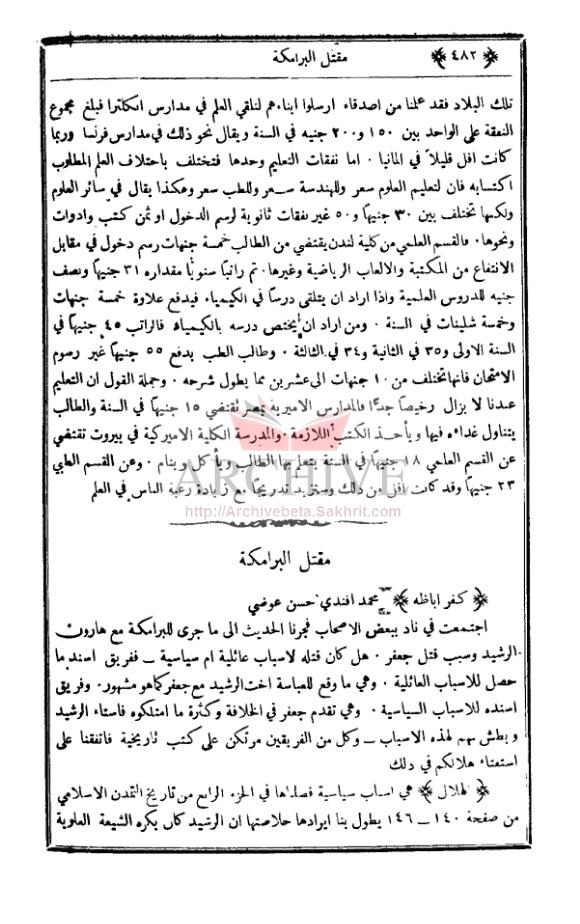 ﴿ ٤٨٢ ﴾
مقتل البرامكة
تلك البلاد فقد علمنا من اصدقاء ارسلوا ابناءهم لتلقي العلم في مدارس انكلترا فبلغ مجموع
النفقة على الواحد بين ١٥٠ و٢٠٠ جنيه في السنة ويقال نحو ذلك في مدارس فرنسا وربما
كانت اقل قليلاً في المانيا ٠ اما نفقات التعليم وحدها فتختلف باختلاف العلم المطلوب
اكتسابه فان لتعليم العلوم سعر وللهندسة سعر وللطب سعر وهكذا يقال في سائر العلوم
ولكنها تختلف بين ٣٠ جنيهاً و٥٠ غير نفقات ثانوية لرسم الدخول او ثمن كتب وادوات
ونحوها ٠ فالقسم العلمي من كلية لندن يقتضي من الطالب خمسة جنيهات رسم دخول في مقابل
الانتفاع من المكتبة والالعاب الرياضية وغيرها ٠ ثم راتباً سنوياً مقداره ٣١ جنيهاً ونصف
جنيه للدروس العلمية واذا اراد ان يتلقى درساً في الكيمياء فيدفع علاوة خمسة جنيهات
وخمسة شلينات في السنة ٠ ومن اراد ان يختص درسه بالكيمياء فالراتب ٤٥ جنيهاً في
السنة الاولى و٣٥ في الثانية و٣٤ في الثالثة ٠ وطالب الطب يدفع ٥٥ جنيهاً غير رسوم
الامتحان فانها تختلف من ١٠ جنيهات الى عشرين مما يطول شرحه ٠ وجملة القول ان التعليم
عندنا لا يزال رخيصاً جدًّا فالمدارس الاميرية بمصر تقتضي ١٥ جنيهاً في السنة والطالب
يتناول غداءه فيها ويأخذ الكتب اللازمة ٠ والمدرسة الكلية الاميركية في بيروت تقتضي
عن القسم العلمي ١٨ جنيهاً في السنة يتعلم بها الطالب ويأكل وينام ٠ وعن القسم الطبي
٢٣ جنيهاً وقد كانت اقل من ذلك وستزيد تدريجاً مع زيادة رغبة الناس في العلم
ARCHIVE
http://Archivebeta.Sakhrit.com
مقتل البرامكة
﴿ كفر اباظه ﴾ محمد افندي حسن عوضي
اجتمعت في ناد ببعض الاصحاب فجرنا الحديث الى ما جرى للبرامكة مع هارون
الرشيد وسبب قتل جعفر ٠ هل كان قتله لاسباب عائلية ام سياسية ــ ففريق اسند ما
حصل للاسباب العائلية ٠ وهي ما وقع للعباسة اخت الرشيد مع جعفر كما هو مشهور ٠ وفريق
اسنده للاسباب السياسية ٠ وهي تقدم جعفر في الخلافة وكثرة ما امتلكوه فاستاء الرشيد
وبطش بهم لهذه الاسباب ــ وكل من الفريقين مرتكن على كتب تاريخية فاتفقنا على
استفتاء هلالكم في ذلك
﴿ الهلال ﴾ هي اسباب سياسية فصلناها في الجزء الرابع من تاريخ التمدن الاسلامي
من صفحة ١٤٠ ــ ١٤٦ يطول بنا ايرادها خلاصتها ان الرشيد كان يكره الشيعة العلوية